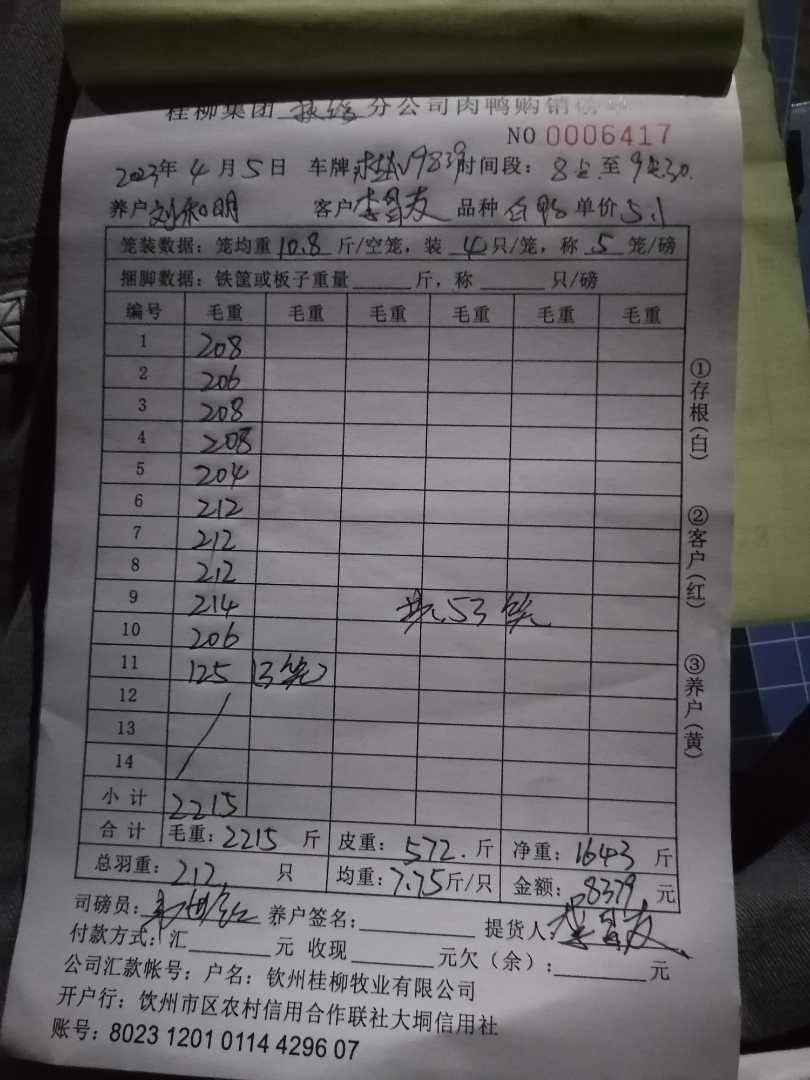 桂柳集团 分公司肉鸭购销
NO 0006417
2023年 4 月 5 日 车牌 V9839 时间段: 8点 至 9点30.
养户 刘和明 客户 李昌友 品种 白鸭 单价 5.1
笼装数据: 笼均重 10.8 斤/空笼, 装 4 只/笼, 称 5 笼/磅
捆脚数据: 铁筐或板子重量 斤, 称 只/磅
编号 毛重 毛重 毛重 毛重 毛重 毛重
1 208
2 206
3 208
4 208
5 204
6 212
7 212
8 212
9 214 共53笼
10 206
11 125 (3笼)
12
13
14
小计 2215
合计 毛重: 2215 斤 皮重: 572. 斤 净重: 1643 斤
总羽重: 212 只 均重: 7.75 斤/只 金额: 8379 元
司磅员: 养户签名: 提货人: 李昌友
付款方式: 汇 元 收现 元欠(余): 元
公司汇款帐号: 户名: 钦州桂柳牧业有限公司
开户行: 钦州市区农村信用合作联社大垌信用社
账号: 8023 1201 0114 4296 07
①存根(白)
②客户(红)
③养户(黄)